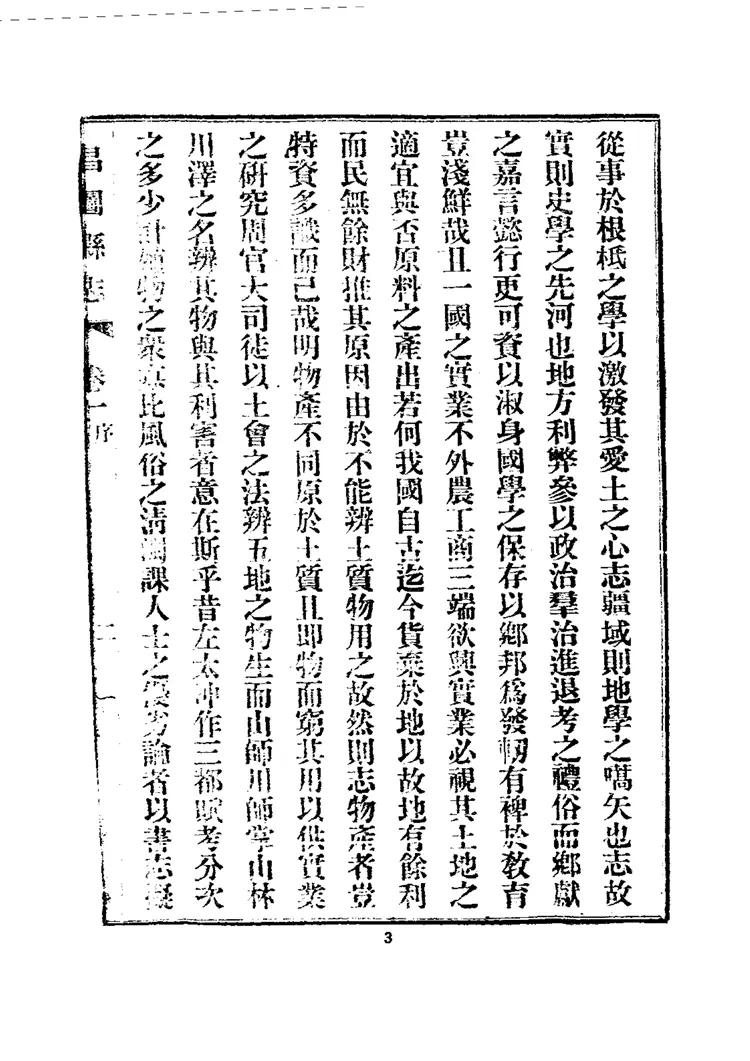 從事於根柢之學以激發其愛土之心志疆域則地學之嚆矢也志故
實則史學之先河也地方利弊參以政治羣治進退考之禮俗而鄉獻
之嘉言懿行更可資以淑身國學之保存以鄉邦爲發軔有裨於敎育
豈淺鮮哉且一國之實業不外農工商三端欲興實業必視其土地之
適宜與否原料之產出若何我國自古迄今貨棄於地以故地有餘利
而民無餘財推其原因由於不能辨土質物用之故然則志物產者豈
特資多識而已哉明物產不同原於土質且即物而窮其用以供實業
之研究周官大司徒以土會之法辨五地之物生而山師川師掌山林
川澤之名辨其物與其利害者意在斯乎昔左太冲作三都賦考分次
之多少計殖物之衆寡比風俗之清濁課人士之優劣論者以書志擬
昌圖縣志 卷一 序 二
3